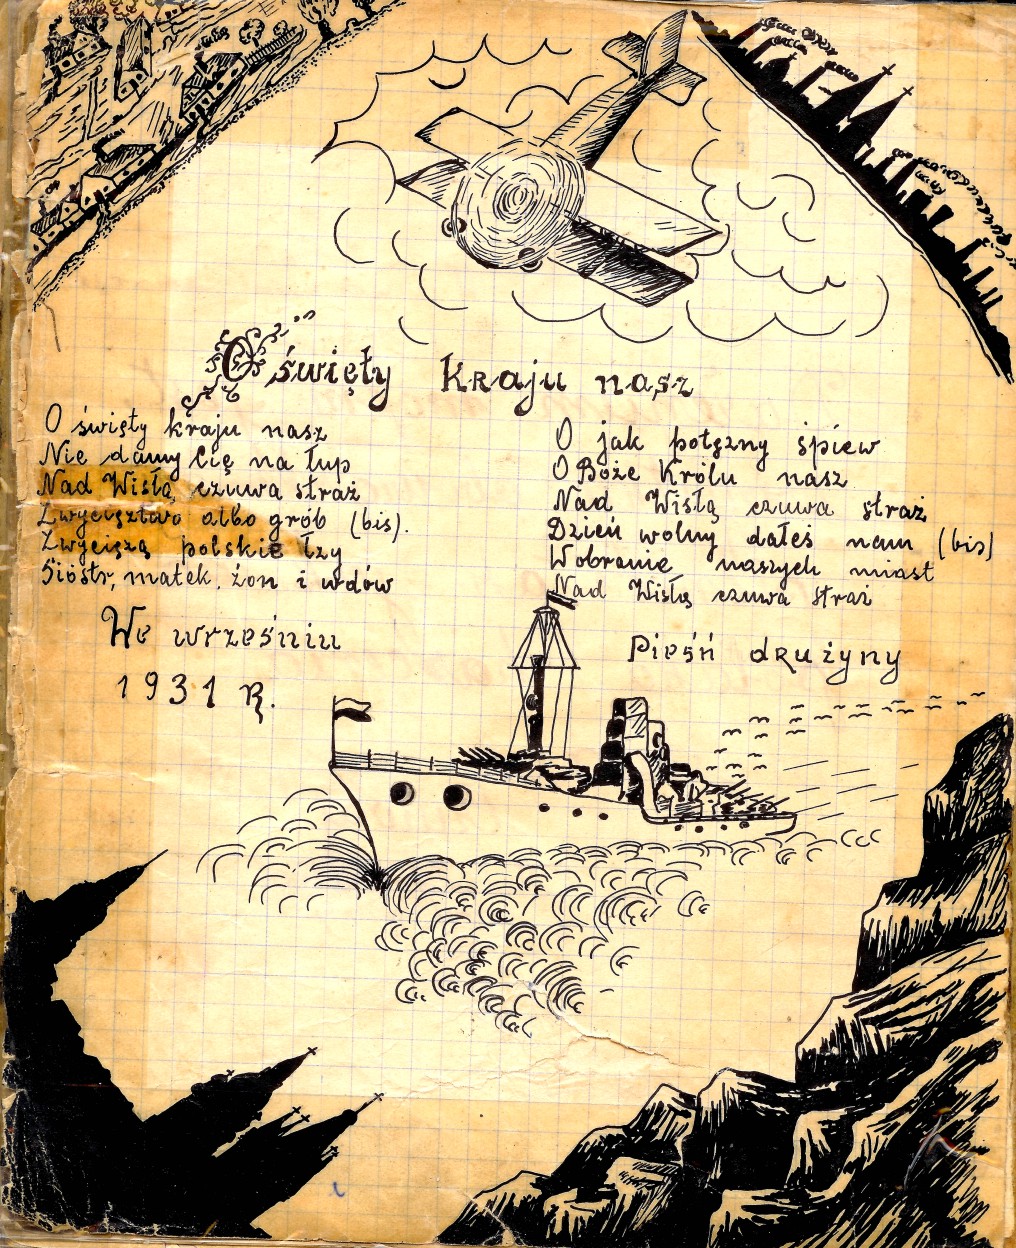 O święty kraju nasz
O święty kraju nasz
Nie damy Cię na łup
Nad Wisłą czuwa straż
Zwycięztwo albo grób (bis).
Zwyciężą polskie łzy
Sióstr, matek, żon i wdów
We wrześniu
1931 R.
O jak potężny śpiew
O Boże Królu nasz
Nad Wisłą czuwa straż
Dzień wolny dałeś nam (bis)
Wobronie naszych miast
Nad Wisłą czuwa straż
Pieśń drużyny